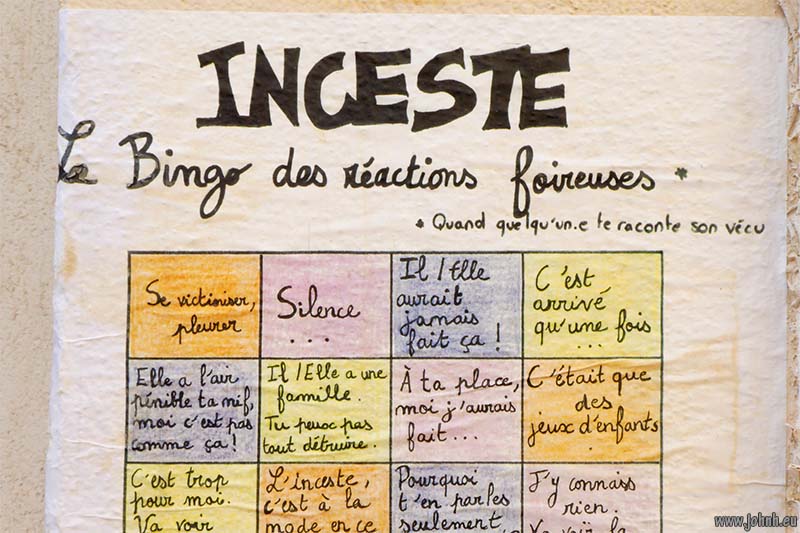 INCESTE
Le Bingo des réactions foireuses *
* Quand quelqu'un.e te raconte son vécu
Se victimiser,
pleurer
Silence
...
Il / Elle
aurait
jamais
fait ça !
C'est
arrivé
qu'une fois
...
Elle a l'air
pénible ta mif,
moi c'est pas
comme ça !
Il / Elle a une
famille.
Tu peux pas
tout détruire.
À ta place,
moi j'aurais
fait ...
C'était que
des
jeux d'enfants
.
C'est trop
pour moi.
Va voir
L'inceste,
c'est à la
mode en ce
Pourquoi
t'en parles
seulement
J'y connais
rien.
Va voir la
www.johnh.eu